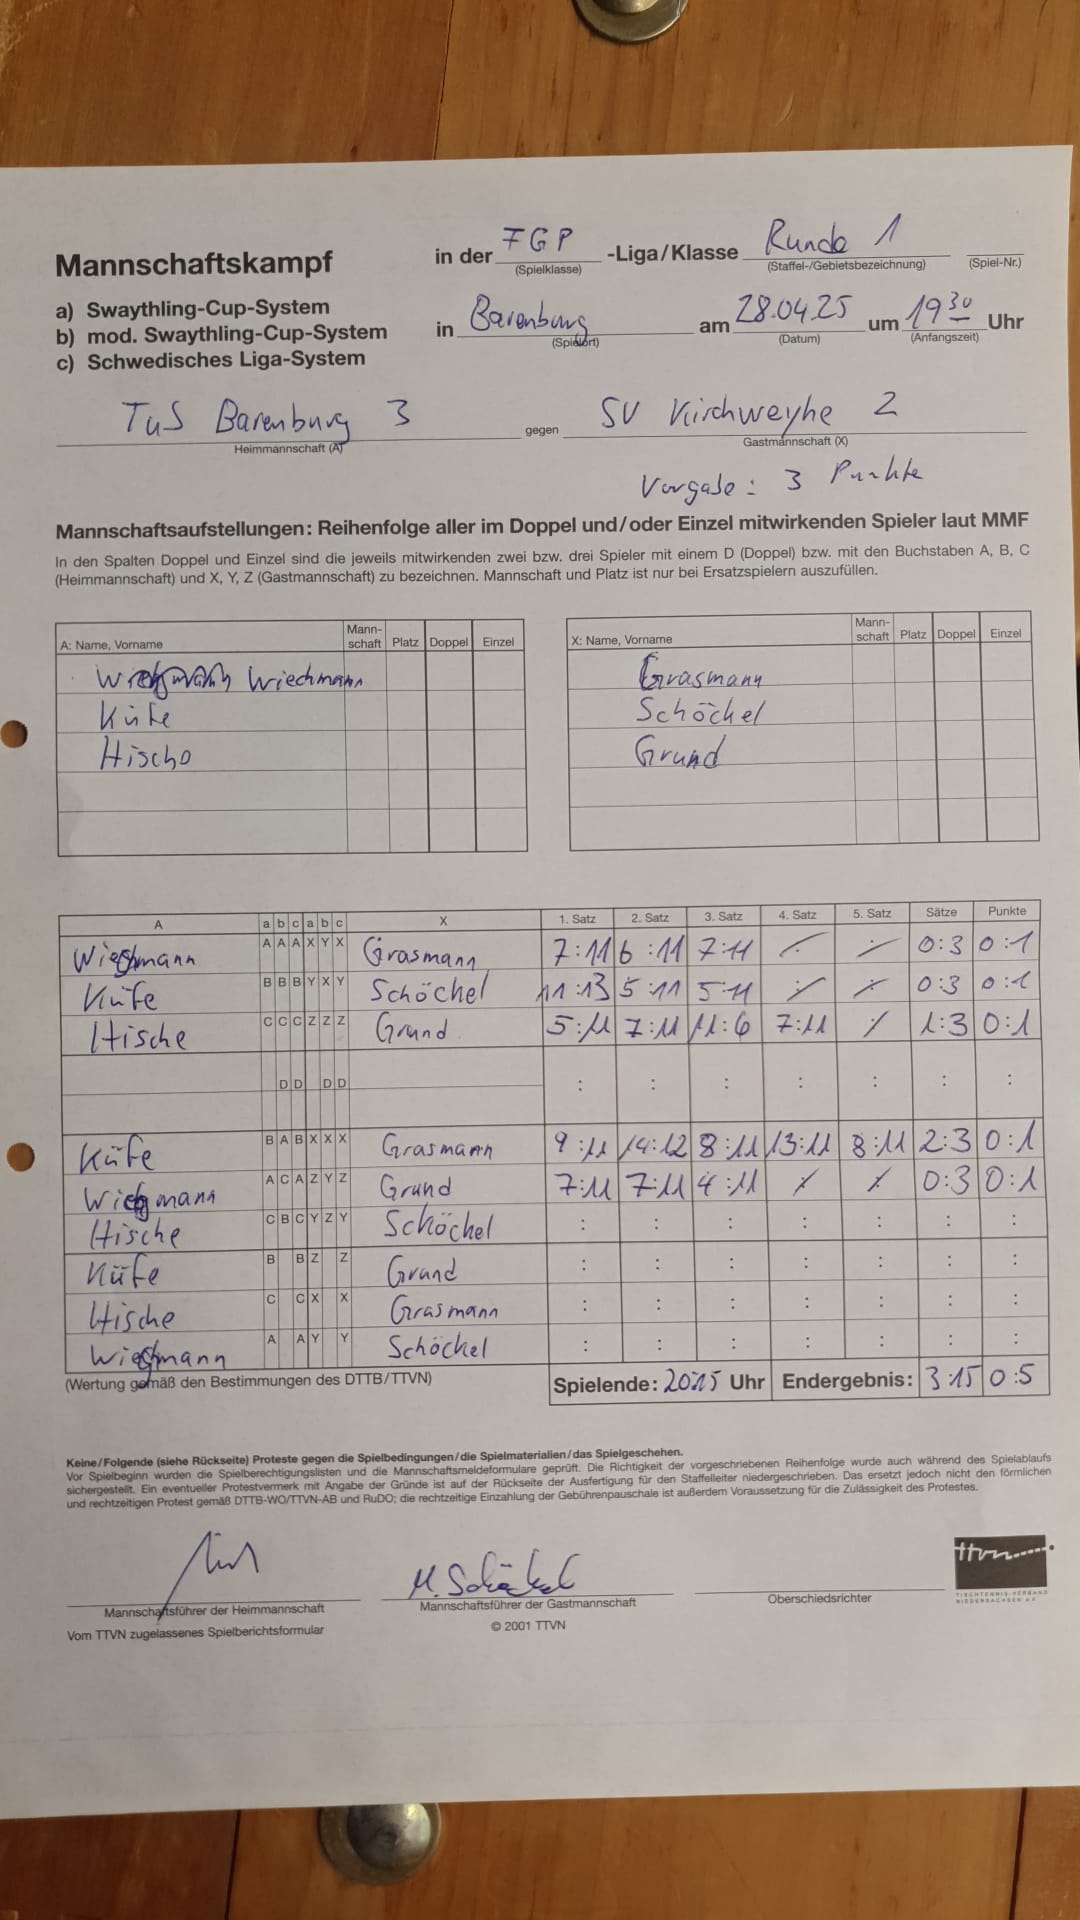 Mannschaftskampf
in der FGP -Liga/Klasse Runde 1
(Spielklasse) (Staffel-/Gebietsbezeichnung) (Spiel-Nr.)
a) Swaythling-Cup-System
b) mod. Swaythling-Cup-System
c) Schwedisches Liga-System
in Barenburg am 28.04.25 um 19 30 Uhr
(Spielort) (Datum) (Anfangszeit)
TuS Barenburg 3 gegen SV Kirchweyhe 2
Heimmannschaft (A) Gastmannschaft (X)
Vorgabe: 3 Punkte
Mannschaftsaufstellungen: Reihenfolge aller im Doppel und/oder Einzel mitwirkenden Spieler laut MMF
In den Spalten Doppel und Einzel sind die jeweils mitwirkenden zwei bzw. drei Spieler mit einem D (Doppel) bzw. mit den Buchstaben A, B, C
(Heimmannschaft) und X, Y, Z (Gastmannschaft) zu bezeichnen. Mannschaft und Platz ist nur bei Ersatzspielern auszufüllen.
A: Name, Vorname Mann-schaft Platz Doppel Einzel
Wiechmann
Küfe
Hische
X: Name, Vorname Mann-schaft Platz Doppel Einzel
Grasmann
Schöckel
Grund
A a b c a b c X 1. Satz 2. Satz 3. Satz 4. Satz 5. Satz Sätze Punkte
Wiechmann A A A X Y X Grasmann 7:11 6:11 7:11 0:3 0:1
Küfe B B B Y X Y Schöckel 11:13 5:11 5:11 0:3 0:1
Hische C C C Z Z Z Grund 5:11 7:11 11:6 7:11 1:3 0:1
D D D D : : : : : : :
Küfe B A B X X X Grasmann 9:11 14:12 8:11 13:11 8:11 2:3 0:1
Wiechmann A C A Z Y Z Grund 7:11 7:11 4:11 0:3 0:1
Hische C B C Y Z Y Schöckel : : : : : : :
Küfe B B Z Z Grund : : : : : : :
Hische C C X X Grasmann : : : : : : :
Wiechmann A A Y Y Schöckel : : : : : : :
(Wertung gemäß den Bestimmungen des DTTB/TTVN) Spielende: 20:15 Uhr Endergebnis: 3:15 0:5
Keine/Folgende (siehe Rückseite) Proteste gegen die Spielbedingungen/die Spielmaterialien/das Spielgeschehen.
Vor Spielbeginn wurden die Spielberechtigungslisten und die Mannschaftsmeldeformulare geprüft. Die Richtigkeit der vorgeschriebenen Reihenfolge wurde auch während des Spielablaufs
sichergestellt. Ein eventueller Protestvermerk mit Angabe der Gründe ist auf der Rückseite der Ausfertigung für den Staffelleiter niedergeschrieben. Das ersetzt jedoch nicht den förmlichen
und rechtzeitigen Protest gemäß DTTB-WO/TTVN-AB und RuDO; die rechtzeitige Einzahlung der Gebührenpauschale ist außerdem Voraussetzung für die Zulässigkeit des Protestes.
M. Schöckel
Mannschaftsführer der Heimmannschaft Mannschaftsführer der Gastmannschaft Oberschiedsrichter
Vom TTVN zugelassenes Spielberichtsformular © 2001 TTVN
ttvn
TISCHTENNIS-VERBAND
NIEDERSACHSEN e.V.